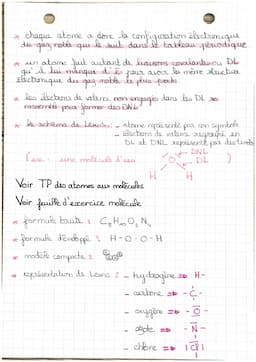 * chaque atome a donc la configuration électronique
du gaz noble qui le suit dans le tableau périodique
* un atome fait autant de liaisons covalentes ou DL
qu'il lui manque d'é pour avoir la même structure
électronique du gaz noble le plus proche
* les électrons de valence non engagés dans les DL se
rassemble pour former des DNL
* le schéma de Lewis : - atome représenté par son symbole
- électrons de valence regroupé en
DL et DNL représenté par des tirets
( ex : une molécule d'eau
DNL
O
DL )
H H
Voir TP des atomes aux molécules
Voir feuille d'exercice molécule
* formule brute : C8 H10 O2 N4
* formule développé : H-O-O-H
* modèle compacte :
* représentation de Lewis : - hydrogène => H-
- carbone => - C -
- oxygène => - O -
- azote => - N -
- chlore => | Cl |